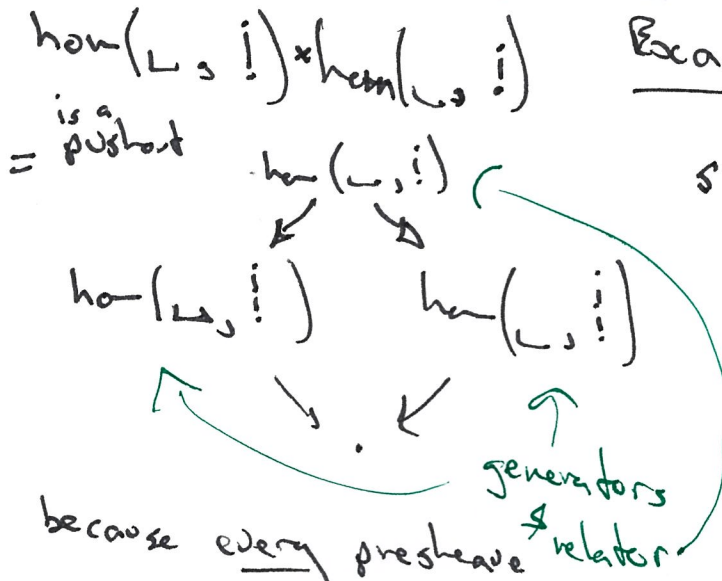 hom(⌴, ⋮) × hom(⌴, ⋮)
Exa
= is a pushout
hom(⌴, ⋮)
s
hom(⌴, ⋮)
hom(⌴, ⋮)
.
generators
& relator
because every presheave